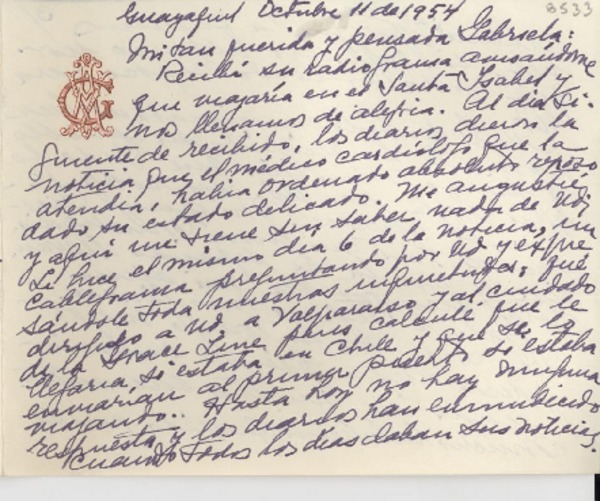 8533
Guayaquil Octubre 11 de 1954
Mi tan querida y pensada Gabriela:
Recibí su radiograma avisándome
que viajaría en el Santa Isabel y
nos llenamos de alegría. Al día si-
guiente de recibido, los diarios dieron la
noticia que el médico cardiólogo que la
atendía, había ordenado absoluto reposo
dado su estado delicado. Me angustié
y aquí me tiene sin saber nada de Ud,
Le hice el mismo día 6 de la noticia, un
cablegrama preguntando por Ud y expre
sándole toda nuestras inquietudes; fué
dirigido a Ud, a Valparaiso y al cuidado
de la Grace Line pues calculé que le
llegaría si estaba en Chile y que se lo
enviarían al primer puerto si estaba
viajando. Hasta hoy no hay ninguna
respuesta y los diarios han enmudecido
cuando todos los días daban sus noticias.